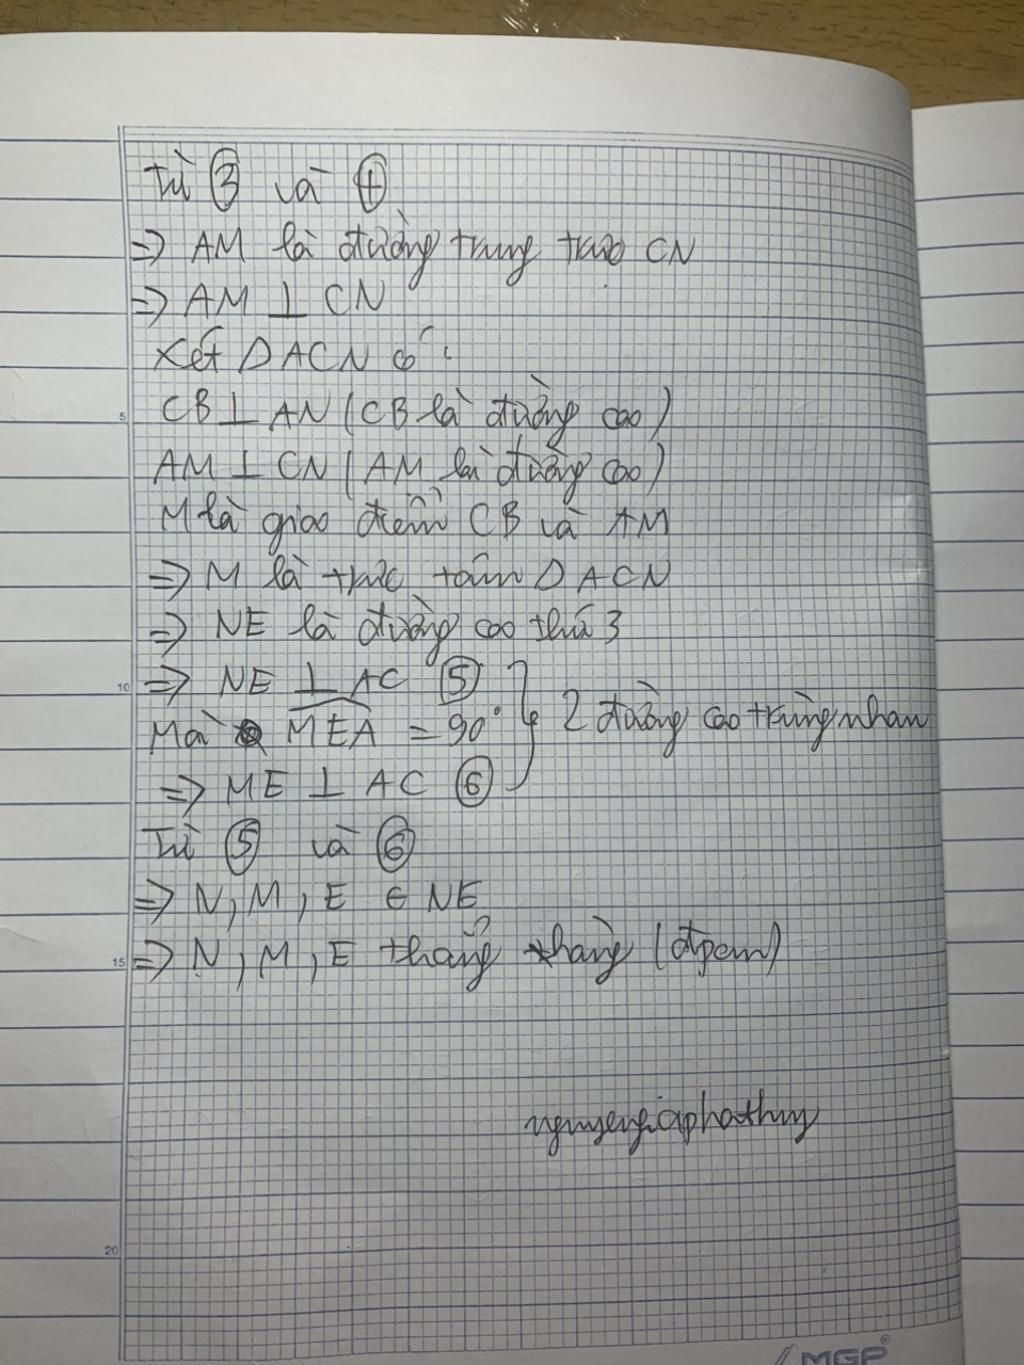 Từ ③ và ④
=> AM là đường trung trực CN
=> AM ⊥ CN
Xét △ACN có :
CB ⊥ AN (CB là đường cao)
AM ⊥ CN (AM là đường cao)
M là giao điểm CB và AM
=> M là trực tâm △ACN
=> NE là đường cao thứ 3
=> NE ⊥ AC ⑤
Mà MEA = 90° 2 đường cao trùng nhau
=> ME ⊥ AC ⑥
Từ ⑤ và ⑥
=> N, M, E ∈ NE
=> N, M, E thẳng hàng (đpcm)
nguyengiaphathuy
5
10
15
20
MGP®